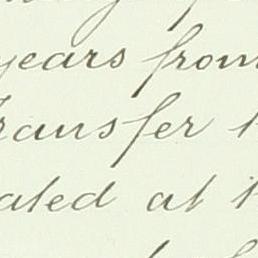 years from
transfer t
ated at t